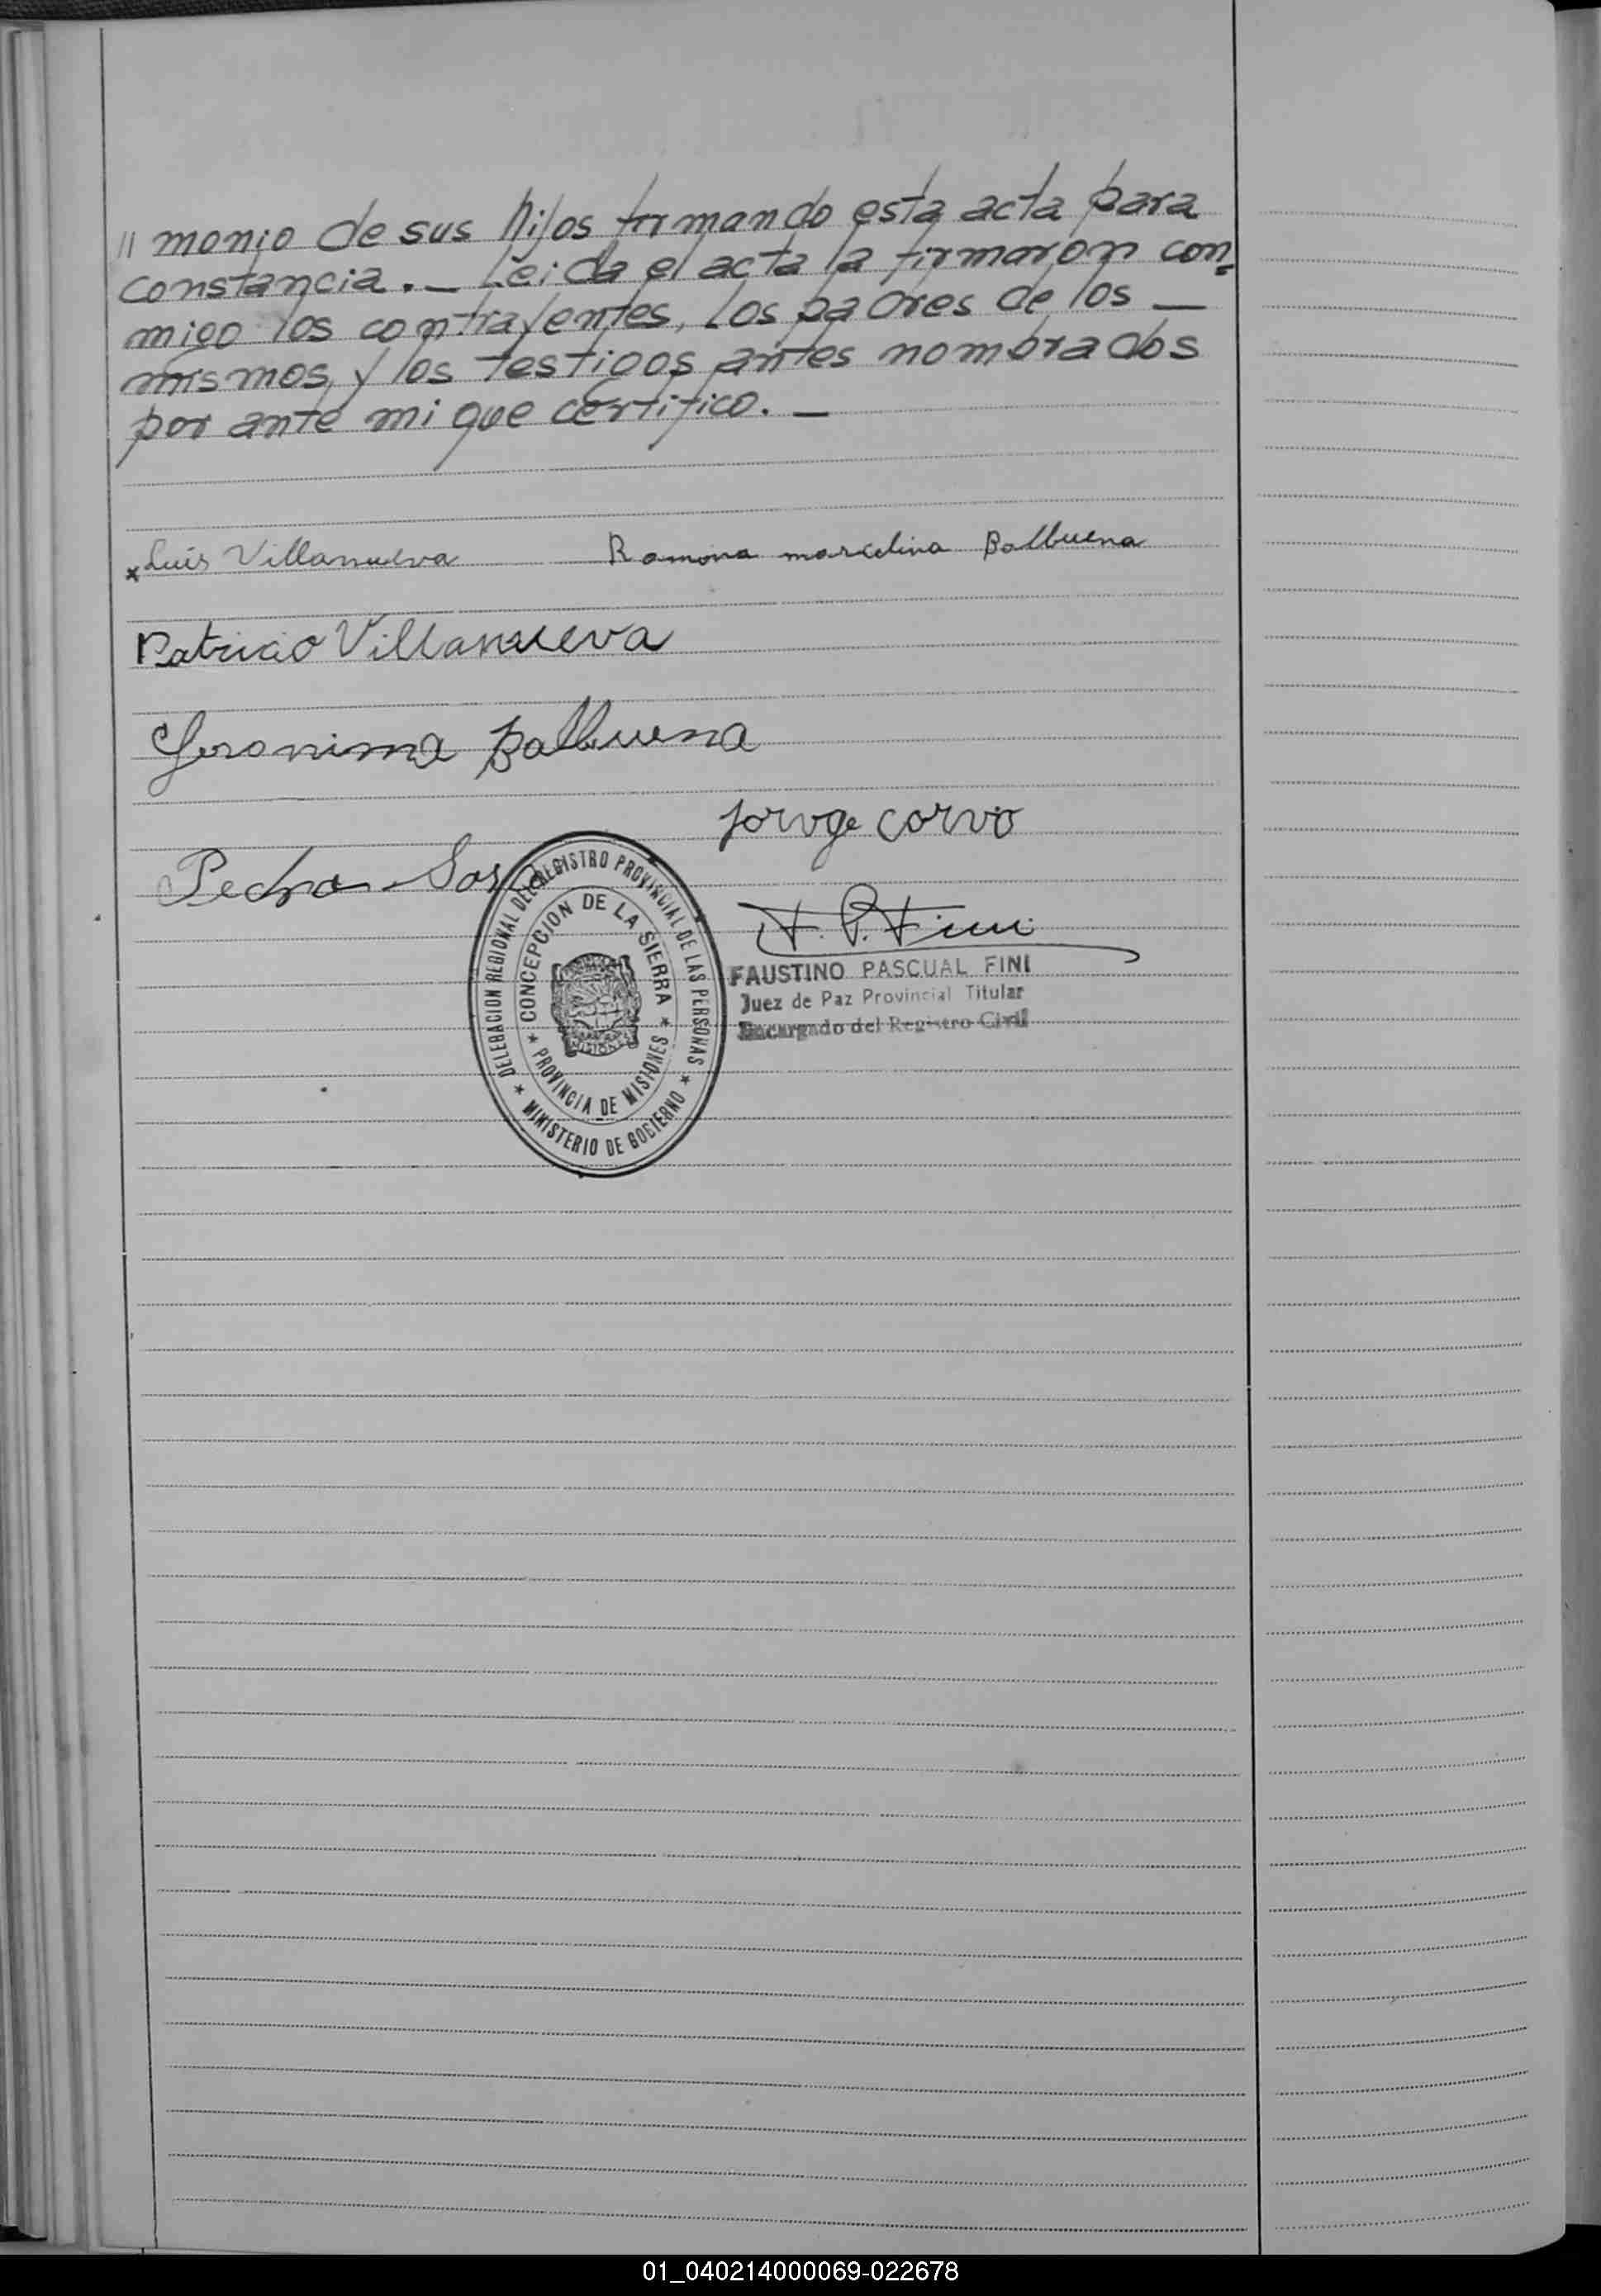 // monio de sus hijos firmando esta acta para
constancia. _ Leida el acta la firmaron con=
migo los contrayentes, los padres de los _
mismos, y los testigos antes nombrados
por ante mi que certifico. _
x Luis Villanueva Ramona marcelina Balbuena
Patricio Villanueva
Geronima Balbuena
Jorvge Corvo
Pedro Sosa
F. P. Fini
FAUSTINO PASCUAL FINI
Juez de Paz Provincial Titular
Encargado del Registro Civil
DELEGACION REGIONAL DEL REGISTRO PROVINCIAL DE LAS PERSONAS
★ MINISTERIO DE GOBIERNO ★
CONCEPCION DE LA SIERRA
★ PROVINCIA DE MISIONES ★
MISIONES
01_040214000069-022678